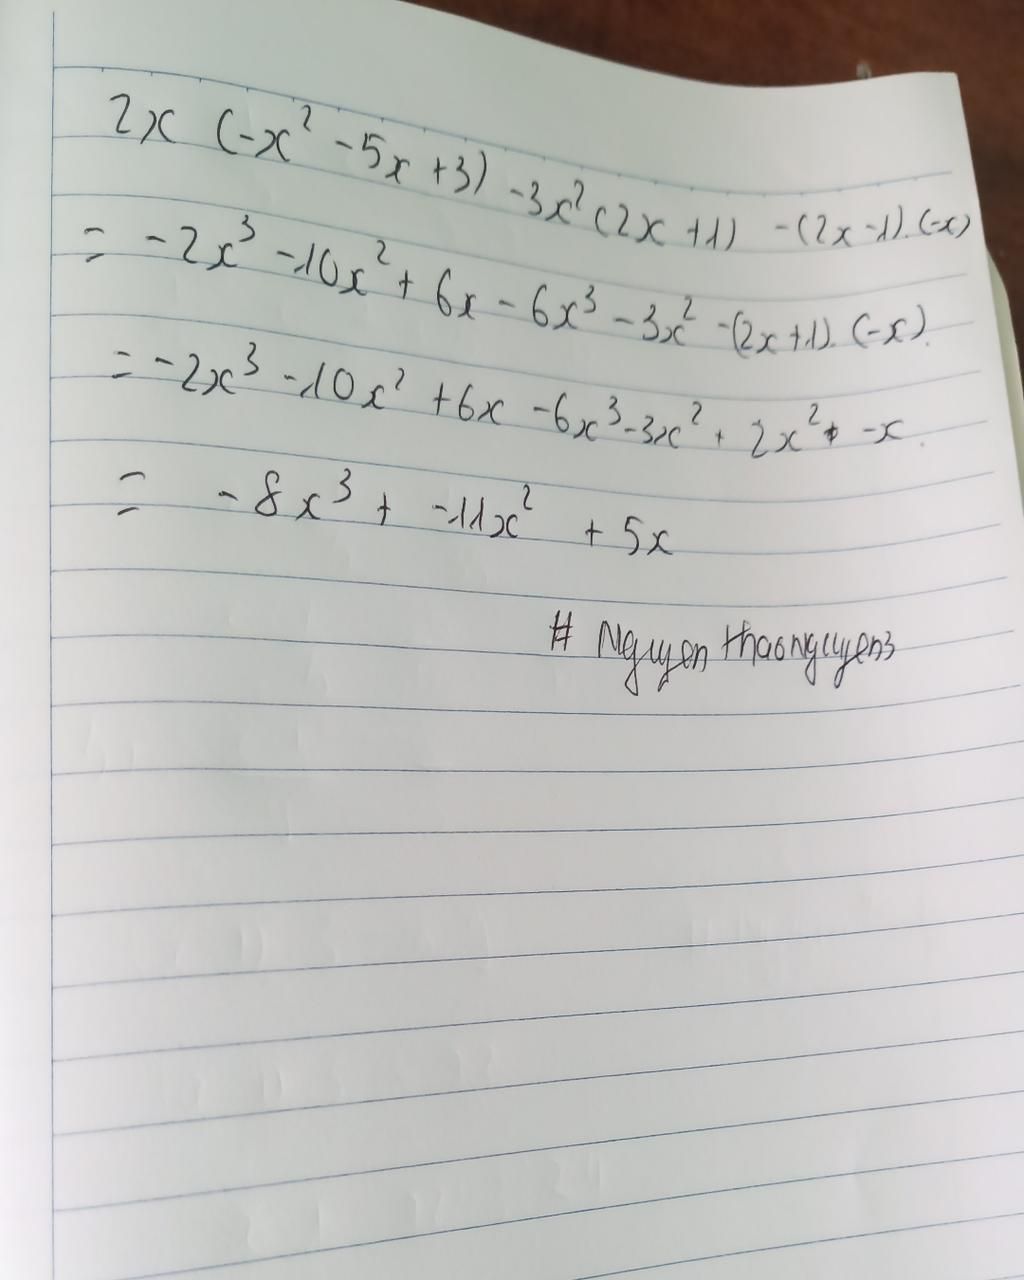 2x (-x² -5x +3) -3x² (2x +1) -(2x -1).(-x)
= -2x³ -10x² + 6x - 6x³ -3x² -(2x+1).(-x).
= -2x³ -10x² +6x -6x³ -3x² + 2x² + -x.
= -8x³ + -11x² + 5x
# Nguyen thaonguyen3